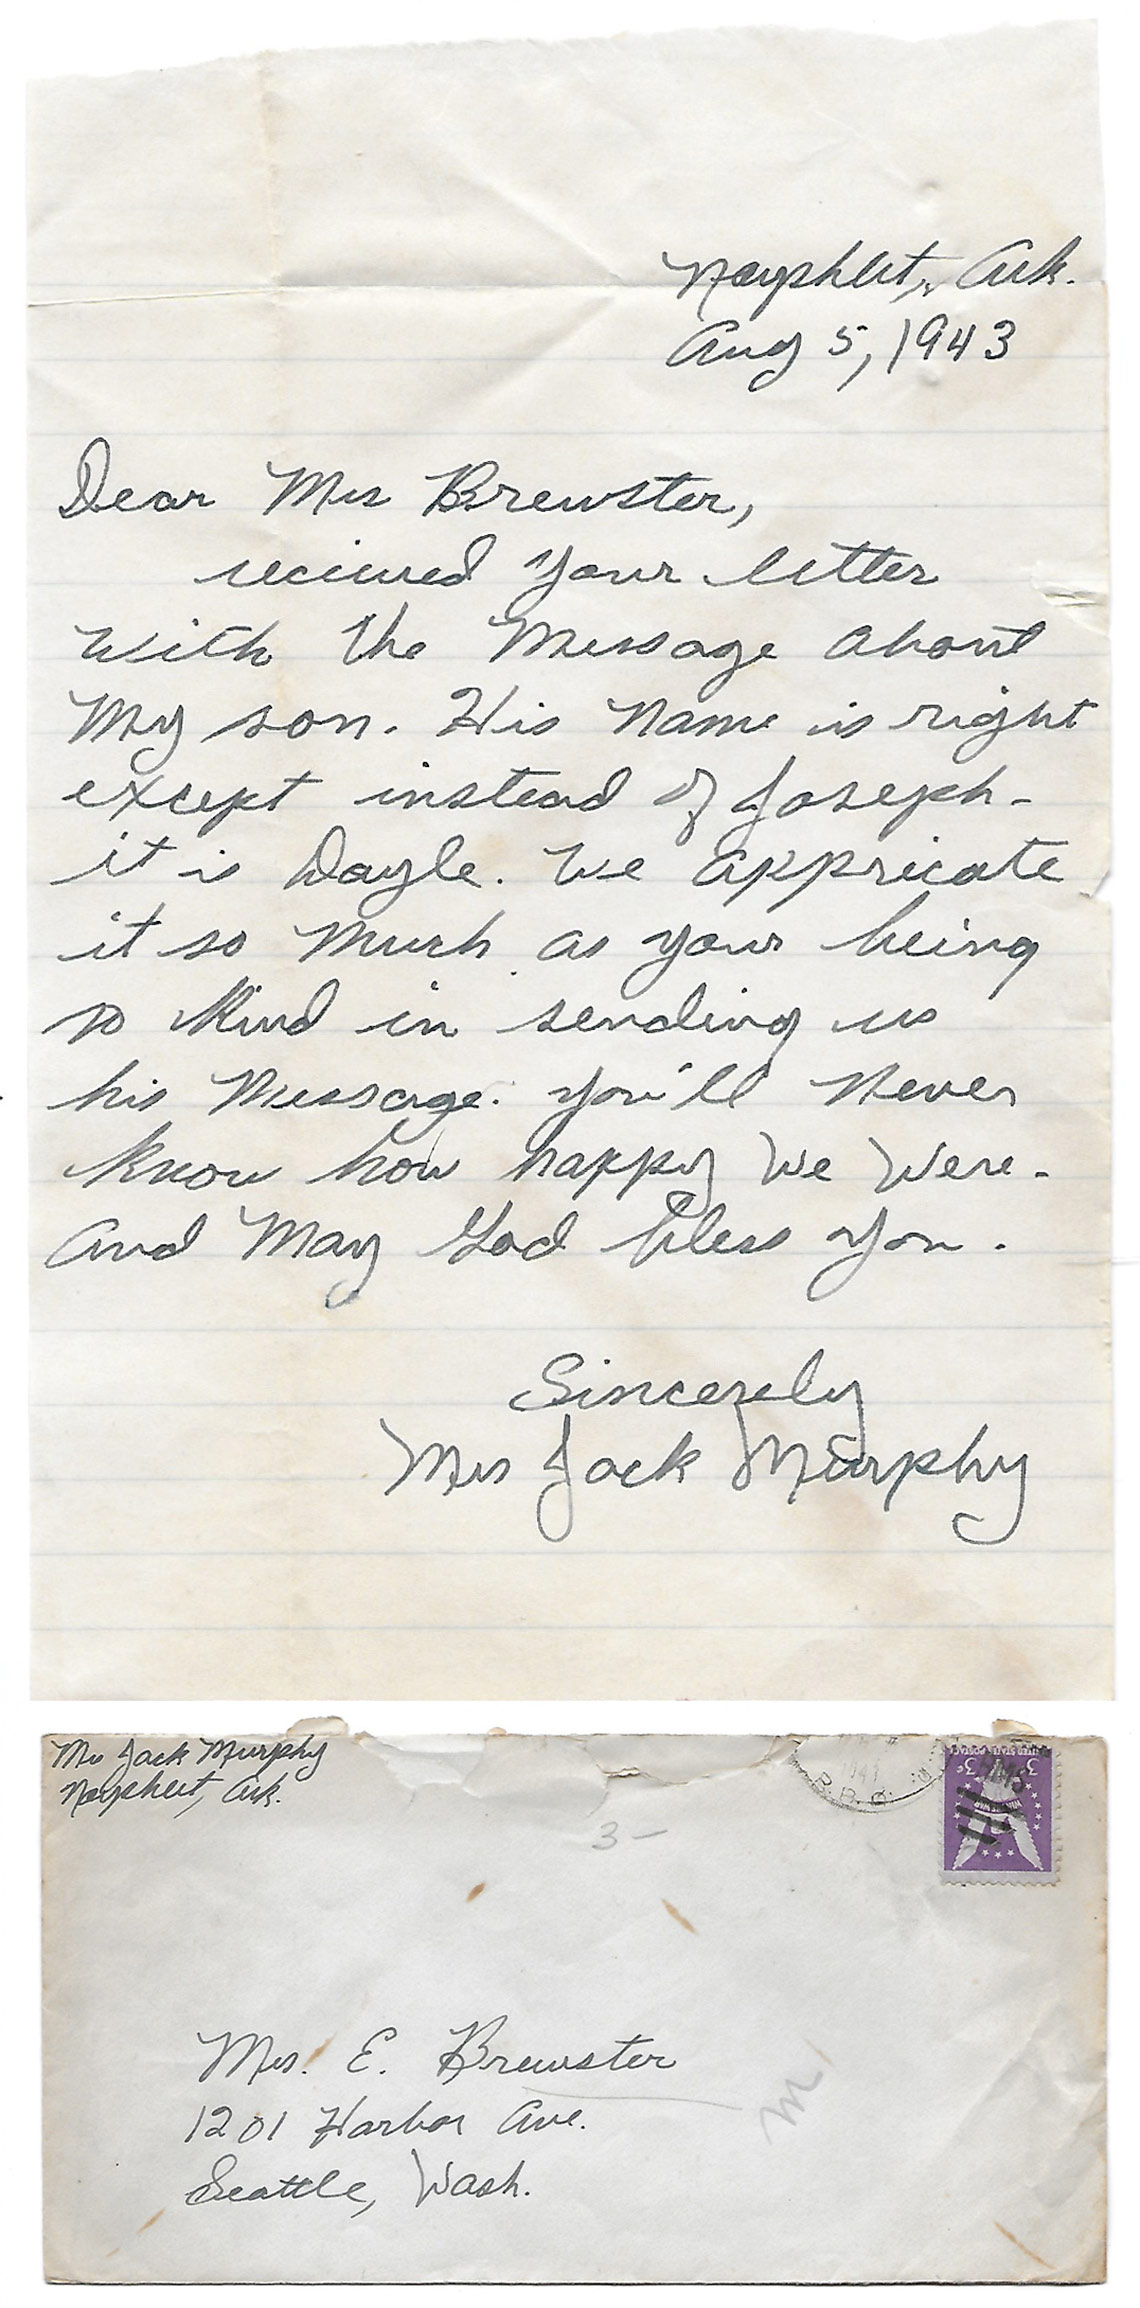 Norphlet, Ark.
Aug 5, 1943
Dear Mrs Brewster,
recieved your letter
with the Message about
My son. His Name is right
except instead of Joseph-
it is Dayle. We appricate
it so Much as your being
so Kind in sending us
his Message. you'll Never
know how happy We Were-
and May God bless you.
Sincerely
Mrs Jack Murphy
Mrs Jack Murphy
Norphlet, Ark.
3-
R.P.O.
3¢
Mrs. E. Brewster
1201 Harbor Ave.
Seattle, Wash.